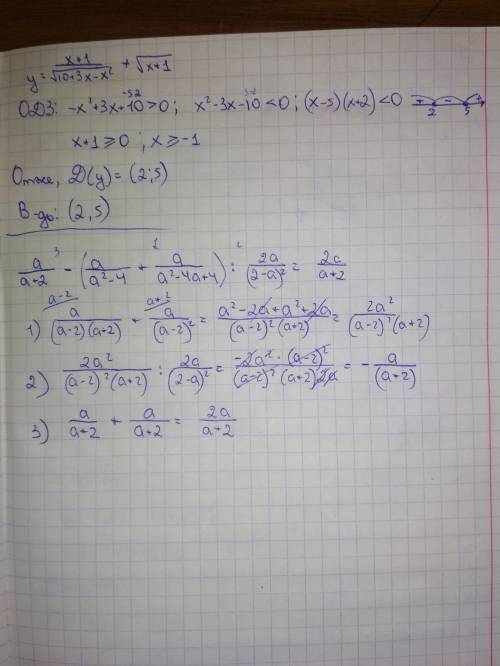 y = \frac{x+1}{\sqrt{10+3x-x²}} + \sqrt{x+1}
ОДЗ: -x²+3x+10>0; x²-3x-10<0; (x-5)(x+2)<0 + - 2 5
x+1≥0, x≥-1
Отже, D(y) = (2;5)
В-дь: (2,5)
\frac{a}{a+2} - (\frac{a}{a²-4} + \frac{a}{a²-4a+4}) : \frac{2a}{(2-a)²} = \frac{2a}{a+2}
1) \frac{a}{(a-2)(a+2)} + \frac{a}{(a-2)²} = \frac{a²-2a+a²+2a}{(a-2)²(a+2)} = \frac{2a²}{(a-2)²(a+2)}
2) \frac{2a²}{(a-2)²(a+2)} : \frac{2a}{(2-a)²} = \frac{-2a²·(a-2)²}{(a-2)²(a+2)2a} = -\frac{a}{(a+2)}
3) \frac{a}{a+2} + \frac{a}{a+2} = \frac{2a}{a+2}